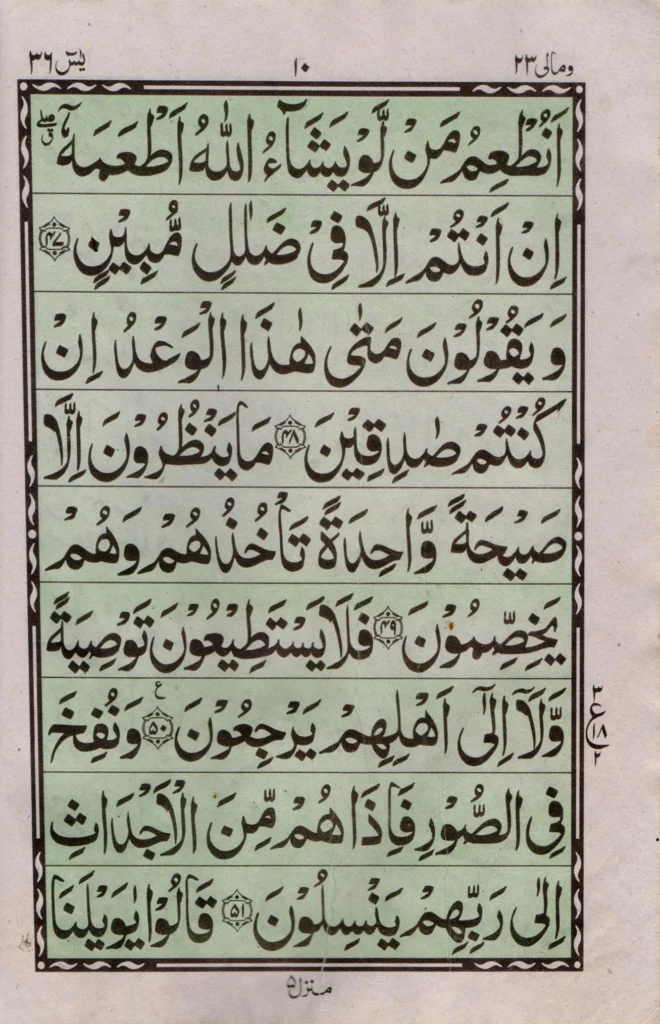 ومالی ۲۳ ۱۰ یٰسٓ ۳۶
اَنُطْعِمُ مَنْ لَّوْ يَشَآءُ اللّٰهُ اَطْعَمَهٗۤ ۖق
اِنْ اَنْتُمْ اِلَّا فِىْ ضَلٰلٍ مُّبِيْنٍ ﴿۴۷﴾
وَ يَقُوْلُوْنَ مَتٰى هٰذَا الْوَعْدُ اِنْ
كُنْتُمْ صٰدِقِيْنَ ﴿۴۸﴾ مَا يَنْظُرُوْنَ اِلَّا
صَيْحَةً وَّاحِدَةً تَاْخُذُهُمْ وَهُمْ
يَخِصِّمُوْنَ ﴿۴۹﴾ فَلَا يَسْتَطِيْعُوْنَ تَوْصِيَةً
وَّلَاۤ اِلٰٓى اَهْلِهِمْ يَرْجِعُوْنَ ﴿۵۰﴾ ع وَنُفِخَ
۳ ع ۱۸ ۲
فِى الصُّوْرِ فَاِذَا هُمْ مِّنَ الْاَجْدَاثِ
اِلٰى رَبِّهِمْ يَنْسِلُوْنَ ﴿۵۱﴾ قَالُوْا يٰوَيْلَنَا
منزل ۵